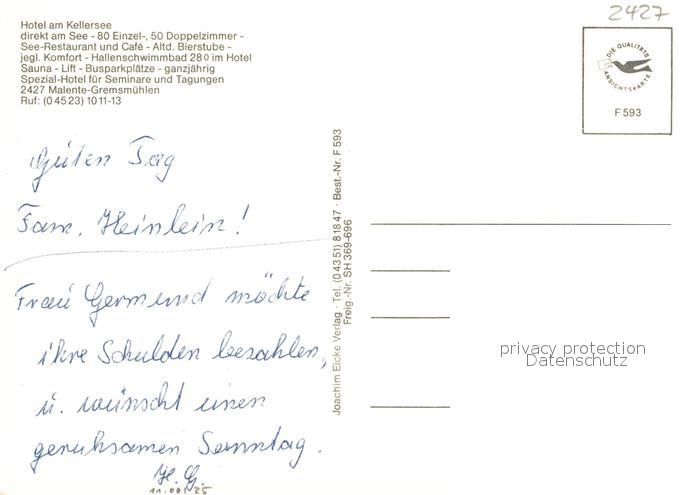 Hotel am Kellersee
direkt am See - 80 Einzel-, 50 Doppelzimmer -
See-Restaurant und Café - Altd. Bierstube -
jegl. Komfort - Hallenschwimmbad 28o im Hotel
Sauna - Lift - Busparkplätze - ganzjährig
Spezial-Hotel für Seminare und Tagungen
2427 Malente-Gremsmühlen
Ruf: (0 45 23) 10 11-13
2427
DIE QUALITÄTS
ANSICHTSKARTE
F 593
Guten Tag
Fam. Heinlein!
Frau Germund möchte
ihre Schulden bezahlen,
u. wünscht einen
geruhsamen Sonntag.
H. G.
Joachim Eicke Verlag · Tel. (0 43 51) 8 18 47 · Best.-Nr. F 593
Freig.-Nr. SH 369-696
privacy protection
Datenschutz